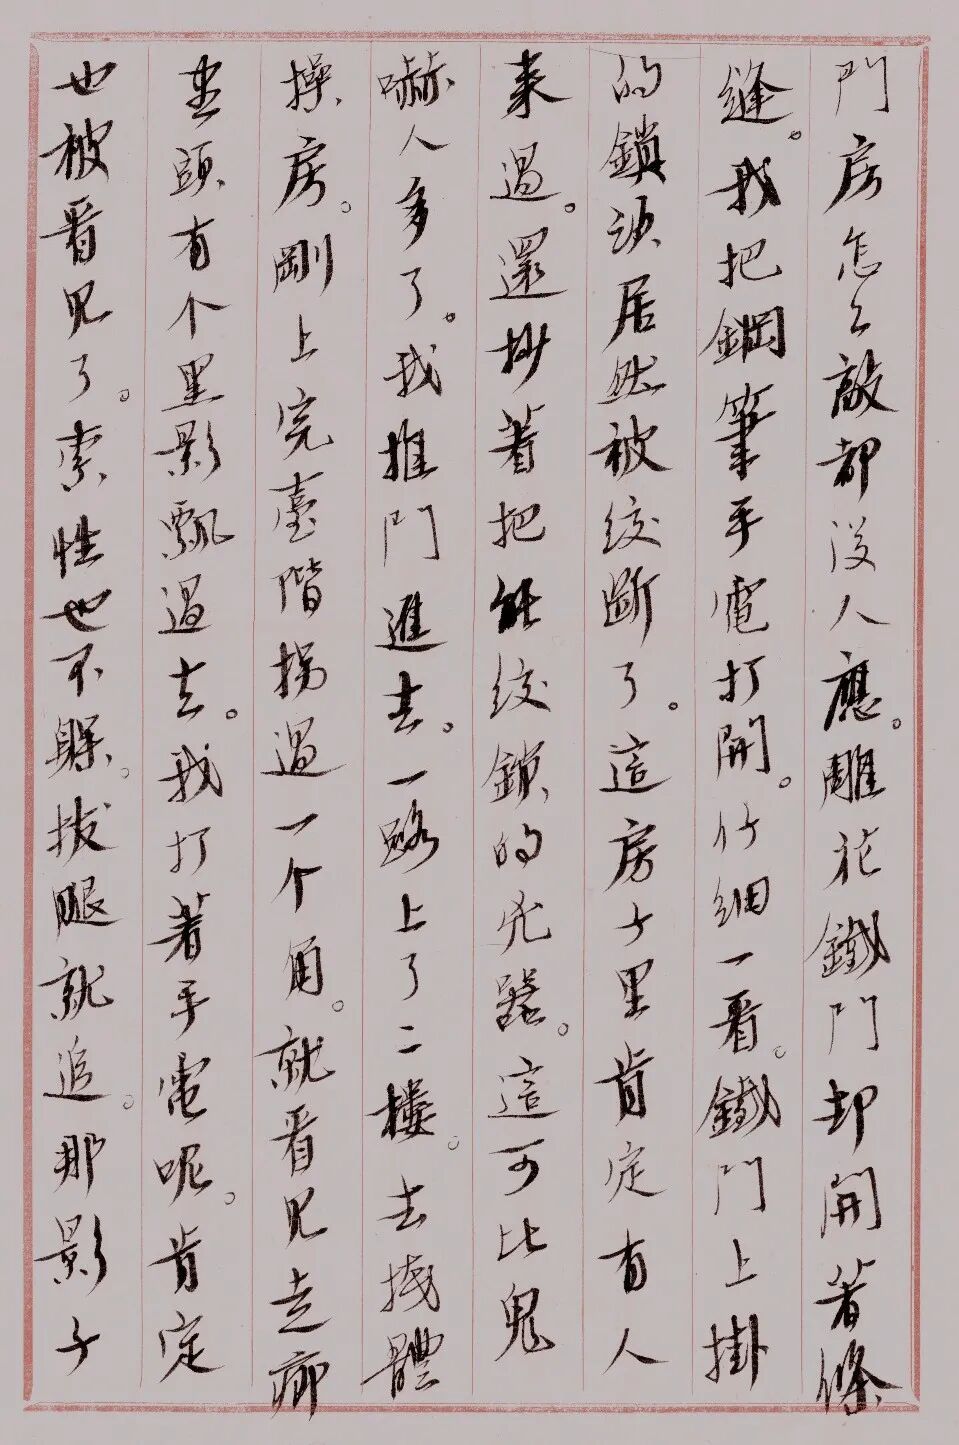 門房怎么敲都沒人應。雕花鐵門却開著條
縫。我把鋼筆手電打開。仔細一看。鐵門上掛
的鎖頭居然被絞斷了。這房子里肯定有人
来過。還抄著把能絞鎖的凶器。這可比鬼
嚇人多了。我推門進去。一路上了二樓。去找體
操房。剛上完臺階拐過一个角。就看見走廊
盡頭有个黑影飄過去。我打著手電呢。肯定
也被看見了。索性也不躲。拔腿就追。那影子